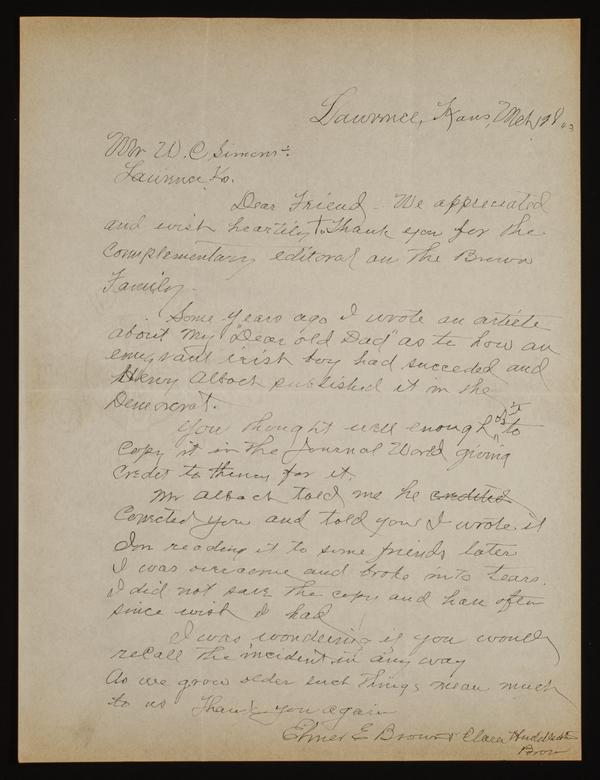 Lawrence, Kans, Mch 128
Mr W. C Simons:
Lawrence Ks.
Dear Friend - We appreciated
and wish heartily to thank you for the
complementary editoral on the Brown
Family -
Some years ago I wrote an article
about my "Dear old Dad" as to how an
emigrant irish boy had succeded and
Henry Alboch published it in the
Democrat.
You thought well enough of it to
copy it in the Journal World giving
credit to Henry for it.
Mr Alboch told me he credited
corrected you and told you I wrote it
In reading it to some friends later
I was overcome and broke into tears.
I did not save the copy and have often
since wish I had
I was wondering if you would
recall the incident in any way
As we grow older such things mean much
to us Thank you again
Elmer E Brown & Clara
Brown